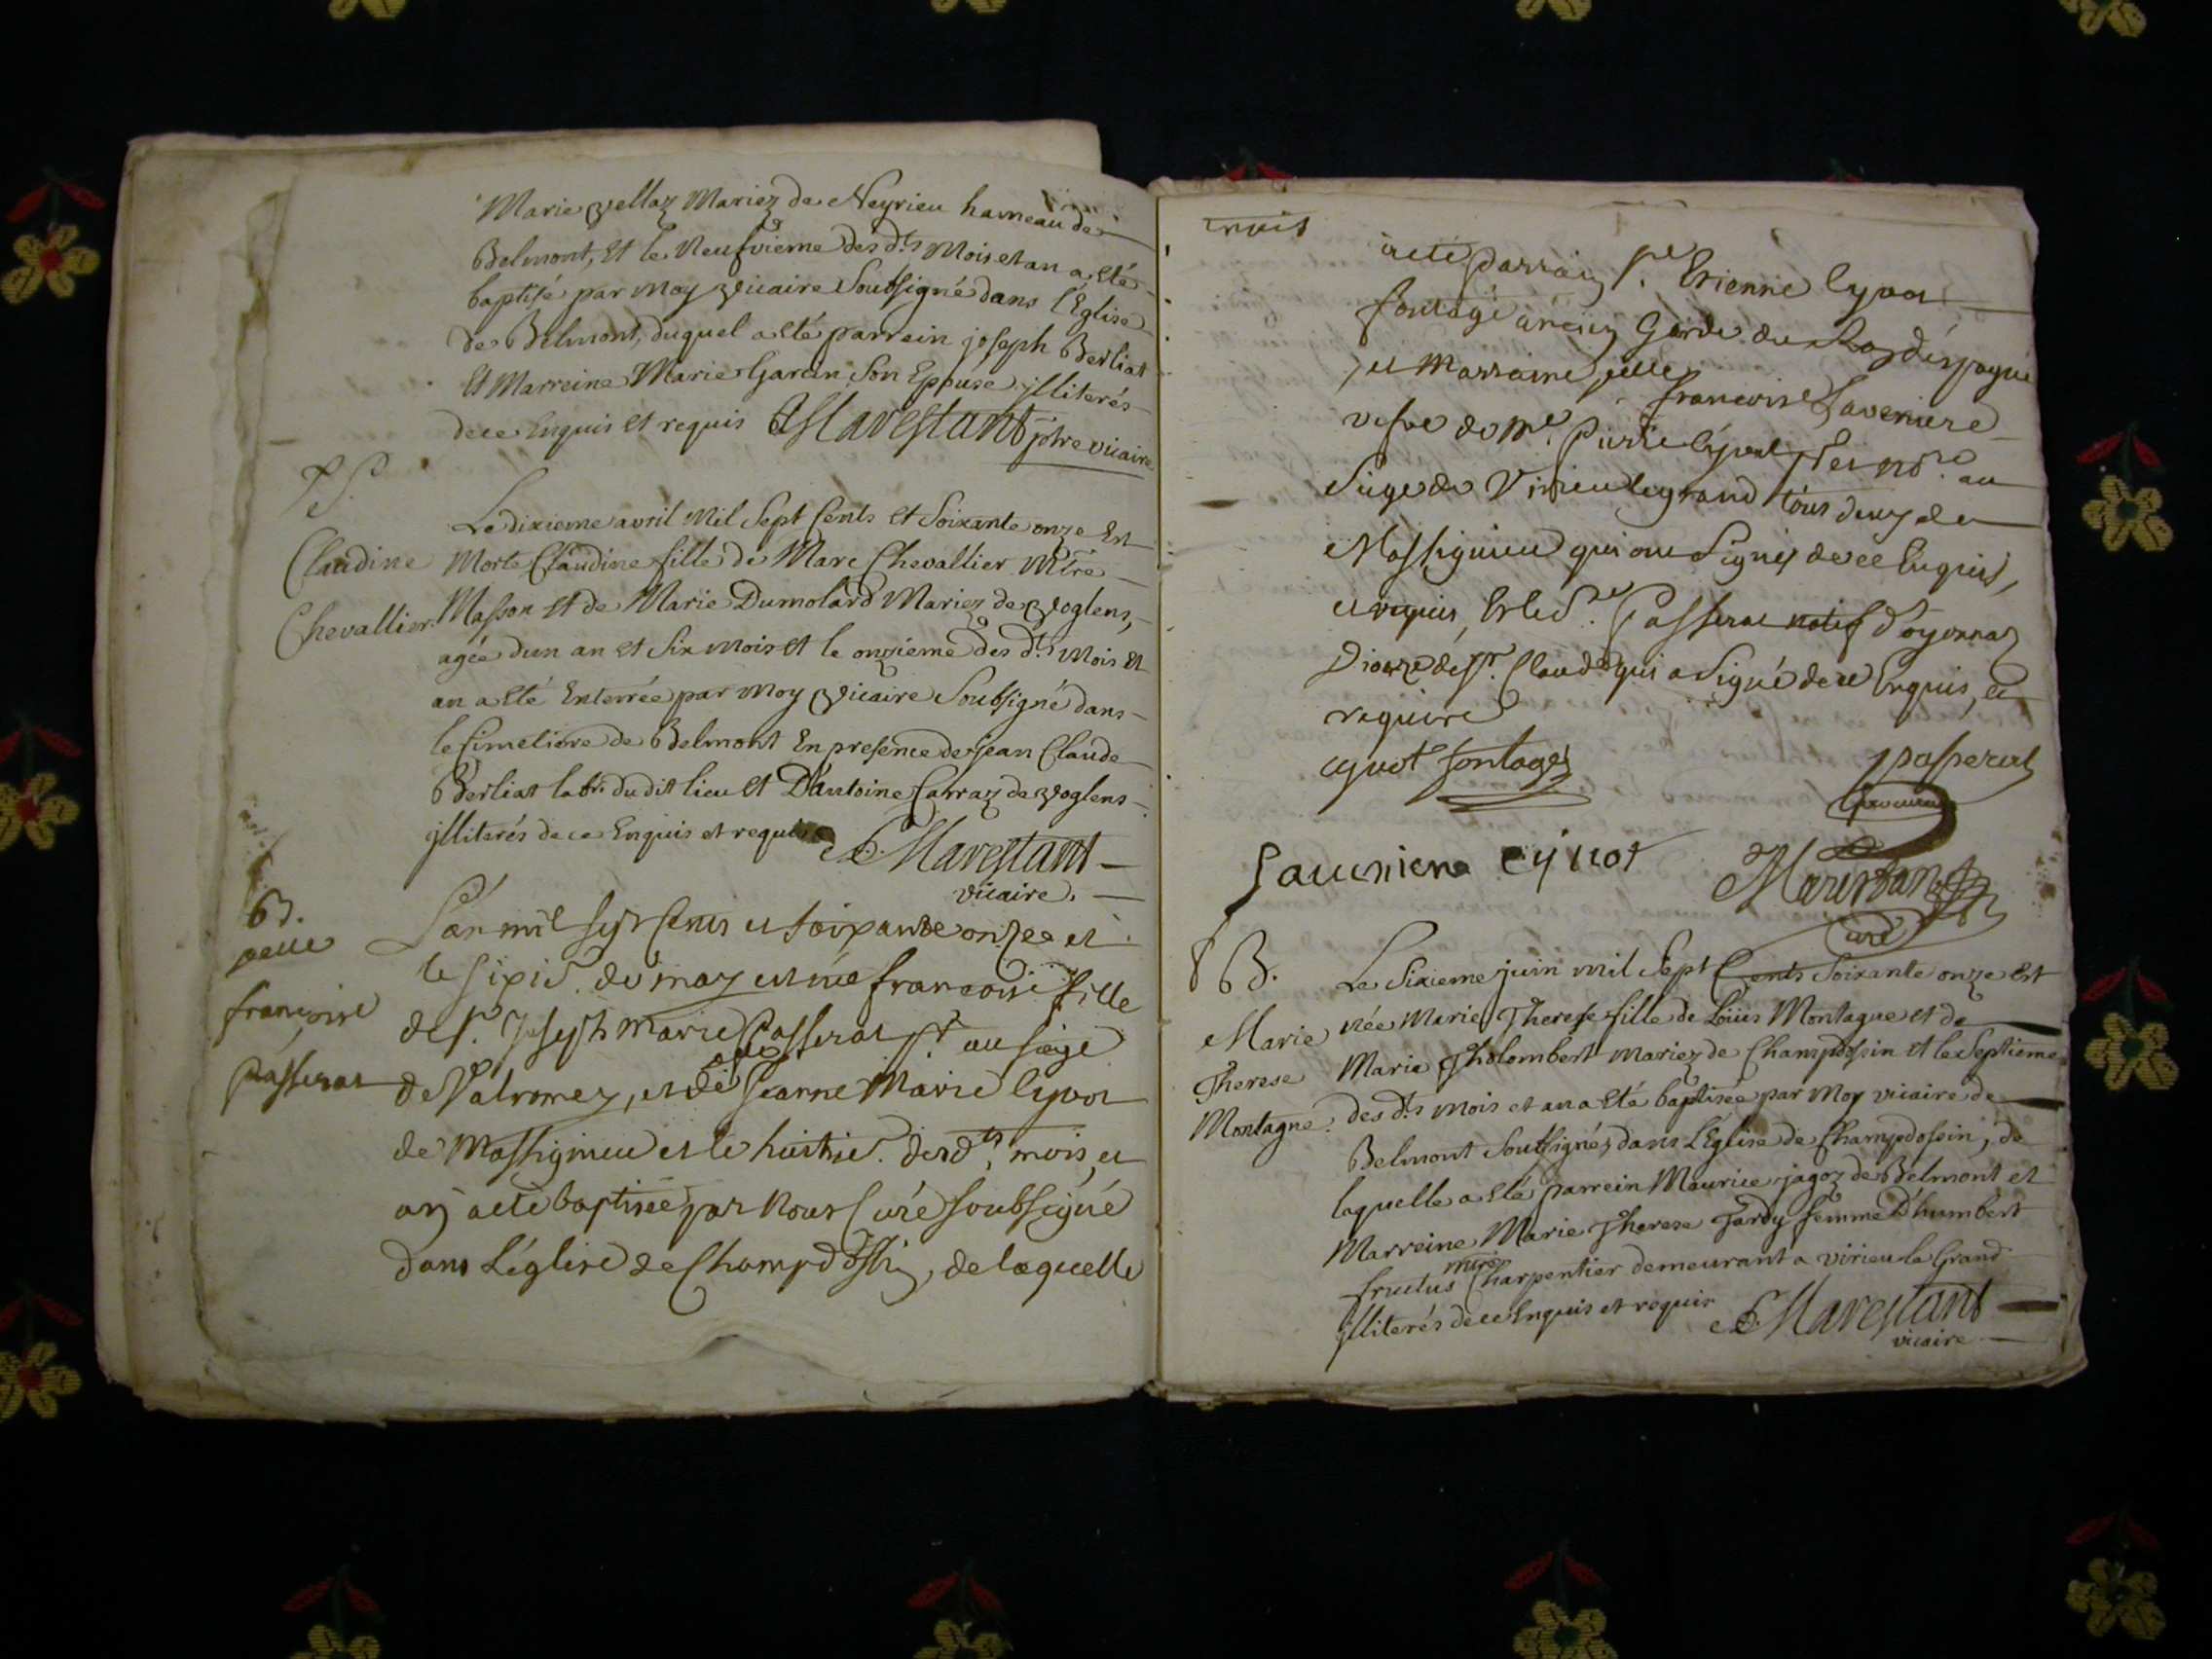 Marie Vellaz Mariez de Neyrieu hameau de
Belmont, Et le Neufvieme des dts Mois et an a été
baptisé par Moy Vicaire Soubsigné dans l'Eglise
de Belmont, duquel a été parrein joseph Berliat
Et Marreine Marie Garcin Son Epouse jlliterés
de ce Enquis et requis Marestant ptre vicaire
Claudine
Chevallier.
Le dixieme avril Mil Sept Cents Et Soixante onze Est
Morte Claudine fille de Marc Chevallier Mtre
Masson Et de Marie Dumolard Mariez de Voglens,
agée dun an Et Six Mois Et le onzieme des dts Mois Et
an a été Enterrée par Moy Vicaire Soubsigné dans
le Cimetiere de Belmont En presence de jean Claude
Berliat labr. du dit lieu Et D'antoine Carraz de Voglens
jlliterés de ce Enquis et requis Marestant
vicaire.
B.
francoise
passerat
L'an mil sept Cents et soixante onze et
le sixie. de may est née francoise fille
de Sr. Joseph Marie Passerat au siege
de Valromey, et de Jeanne Marie Cyvot
de Massignieu et le huitie. des dts mois, et
an a eté baptisée par Nous Curé soubsigné
dans L'église de Champdossin, de laquelle
trois
a eté parrain Sr. Etienne Cyvot
fontage ancien Garde du Roy d'espagne
et Marraine francoise Laveniere
vefve de Me. Pierre Cyvot au
Siege de Virieu le grand tous deux de
Massignieu qui ont Signés de ce Enquis,
et requis, Et led. Sr Passerat natif d'oyonnaz
Dioceze de St. Claude qui a Signé de ce Enquis, et
requis
cyvot fontage passerat
Laueniere cyuot Marestan
curé
8 B.
Marie
Therese
Montagne.
Le Sixieme juin mil Sept Cents Soixante onze Est
née Marie Therese fille de Loüis Montagne et de
Marie Tholombert mariez de Champdossin Et le Septieme
des dts mois et an a été baptisée par Moy vicaire de
Belmont Soubsigné, dans L'Eglise de Champdossin, de
laquelle a été parrein Maurice jagoz de Belmont et
Marreine Marie Therese Tardy femme D'humbert
fructus mtre Charpentier demeurant a virieu le Grand
jlliterés de ce Enquis et requis Marestant
vicaire